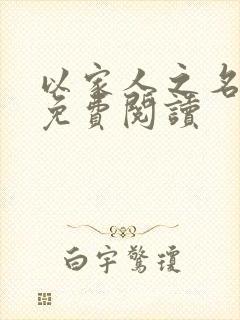 以家人之名
免費閱讀
白宇驚瓊